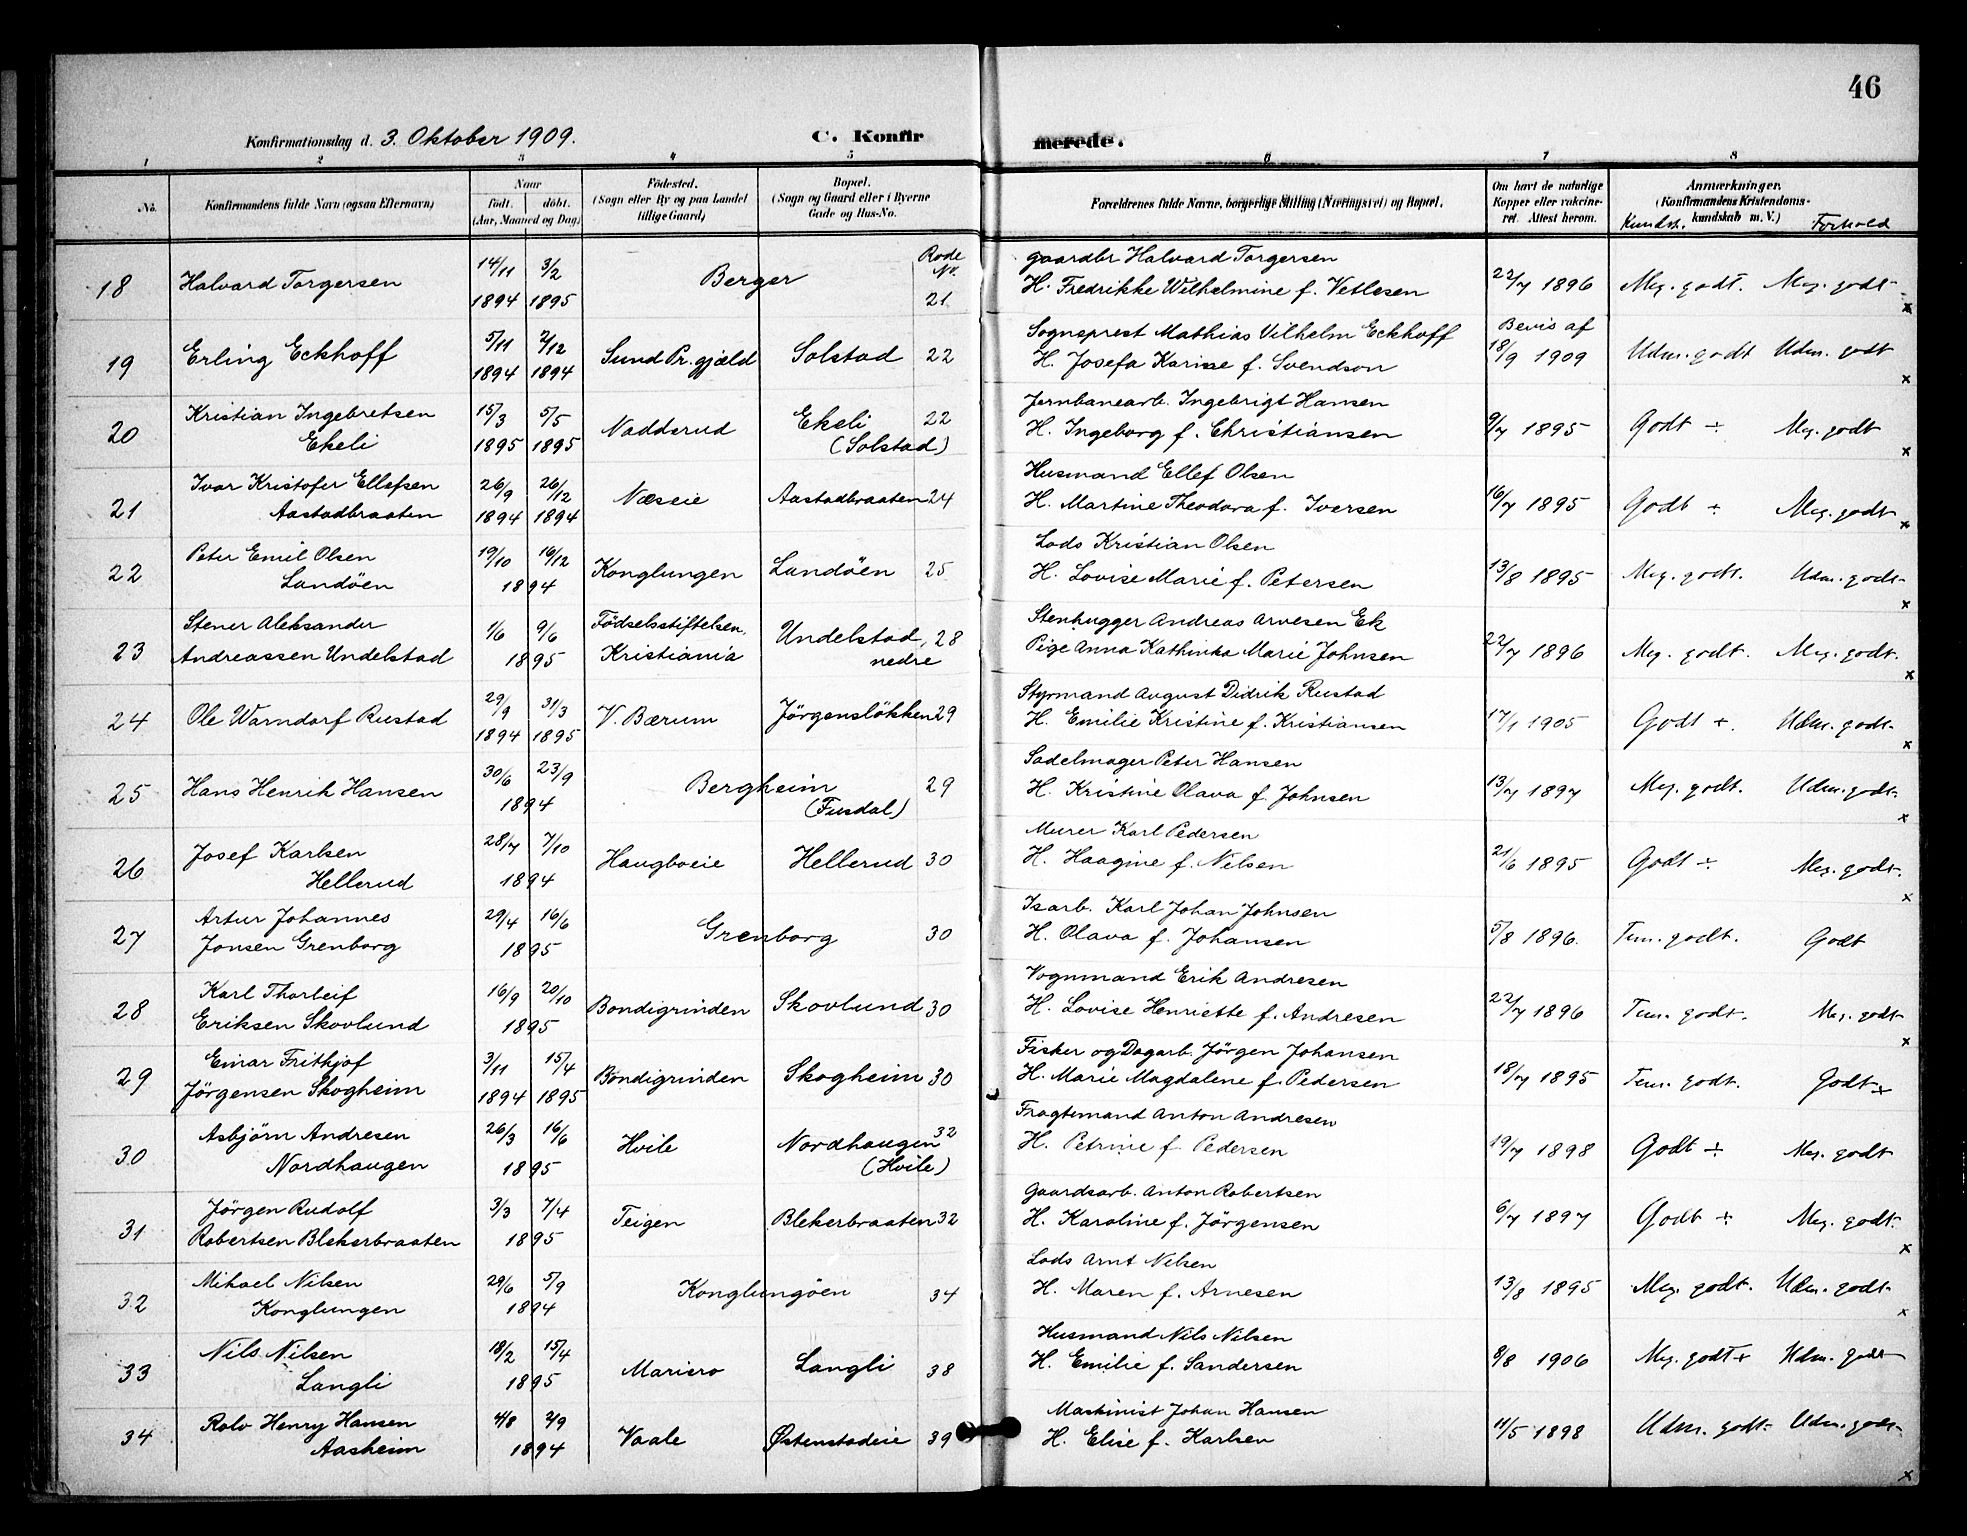 46
Konfirmationsdag d. 3. Oktober 1909.
C. Konfir
merede.
1 2 3 4 5 6 7 8
No.
Konfirmandens fulde Navn (ogsaa Efternavn)
Naar
født. døbt.
(Aar, Maaned og Dag)
Födested.
(Sogn eller By og paa Landet
tillige Gaard)
Bopæl.
(Sogn og Gaard eller i Byerne
Gade og Hus-No.
Forældrenes fulde Navne, borgerlige Stilling (Næringsvei) og Bopæl.
Om havt de naturlige
Kopper eller vakcine-
ret. Attest herom.
Anmærkninger.
(Konfirmandens Kristendoms-
kundskab m. V.)
Kundsk. Forhold
Rode
Nr.
18 Halvard Torgersen 14/11 1894 3/2 1895 Berger 21.
gaardbr Halvard Torgersen
H. Fredrikke Wilhelmine f. Vetlesen 22/7 1896 Meg. godt. Meg. godt x
19 Erling Eckhoff 5/11 1894 2/12 1894 Sund Pr.gjæld Solstad 22
Sogneprest Mathias Vilhelm Eckhoff
H. Josefa Karine f. Svendson Bevis af 18/9 1909 Udm. godt Udm. godt x
20 Kristian Ingebretsen
Ekeli 15/3 1895 5/5 1895 Nadderud Ekeli 22
(Solstad)
Jernbanearb. Ingebrigt Hansen
H. Ingeborg f. Christiansen 9/7 1895 Godt ÷ Meg. godt x
21 Ivar Kristofer Ellefsen
Aastadbraaten 26/9 1894 26/12 1894 Næseie Aastadbraaten 24
Husmand Ellef Olsen
H. Martine Theodora f. Iversen 16/7 1895 Godt ÷ Meg. godt x
22 Peter Emil Olsen
Landöen 19/10 16/12 1894 Konglungen Landöen 25
Lods Kristian Olsen
H. Lovise Marie f. Petersen 13/8 1895 Meg. godt. Udm. godt x
23 Stener Aleksander
Andreassen Undelstad 1/6 9/6 1895 Födselsstiftelsen,
Kristiania Undelstad, 28
nedre
Stenhugger Andreas Arvesen Ek
Pige Anna Kathinka Marie Johnsen 22/7 1896 Meg. godt. Meg. godt. x
24 Ole Warndorf Rustad 29/9 1894 31/3 1895 V. Bærum Jörgenslökken 29
Styrmand August Didrik Rustad
H. Emilie Kristine f. Kristiansen 17/1 1905 Godt +. Udm. godt. x
25 Hans Henrik Hansen 30/6 23/9 1894 Bergheim 29
(Fusdal)
Sadelmager Peter Hansen
H. Kristine Olava f. Johnsen 13/7 1897 Meg. godt. Udm. godt. x
26 Josef Karlsen
Hellerud 28/7 7/10 1894 Haugboeie Hellerud 30
Murer Karl Pedersen
H. Haagine f. Nilsen 21/6 1895 Godt ÷ Meg. godt. x
27 Artur Johannes
Jonsen Grenborg 29/4 16/6 1895 Grenborg 30
Isarb. Karl Johan Johnsen
H. Olava f. Johansen 5/8 1896. Tem. godt. Godt
28 Karl Thorleif
Eriksen Skovlund 16/9 20/10 1895 Bondigrinden Skovlund 30
Vognmand Erik Andresen
H. Lovise Henriette f. Andresen 22/7 1896 Tem. godt. Meg. godt x
29 Einar Frithjof
Jörgensen Skogheim 3/11 1894 15/4 1895 Bondigrinden Skogheim 30
Fisker og Dagarb. Jörgen Johansen
H. Marie Magdalene f. Pedersen 18/7 1895 Tem. godt. Godt x
30 Asbjörn Andresen
Nordhaugen 26/3 16/6 1895 Hvile Nordhaugen 32
(Hvile)
Fragtemand Anton Andresen
H. Petrine f Pedersen 19/7 1898 Godt ÷ Meg. godt
31 Jörgen Rudolf
Robertsen Blekerbraaten 3/3 7/4 1895 Teigen Blekerbraaten 32
Gaardsarb. Anton Robertsen
H. Karoline f. Jörgensen 6/7 1897 Godt ÷ Meg. godt. x
32 Mikael Nilsen
Konglungen 29/6 5/9 1894 Konglungöen 34
Lods Arnt Nilsen
H. Maren f. Arnesen 13/8 1895 Meg. godt. Udm. godt. x
33 Nils Nilsen
Langli 18/2 15/4 1895 Mariero Langli 38
Husmand Nils Nilsen
H. Emilie f. Sandersen 8/8 1906 Meg. godt + Udm. godt
34 Rolv Henry Hansen
Aasheim 4/8 2/9 1894 Vaale Østenstadeie 39
Maskinist Johan Hansen
H. Elise f. Karlsen 11/5 1898 Udm. godt. Udm. godt. x